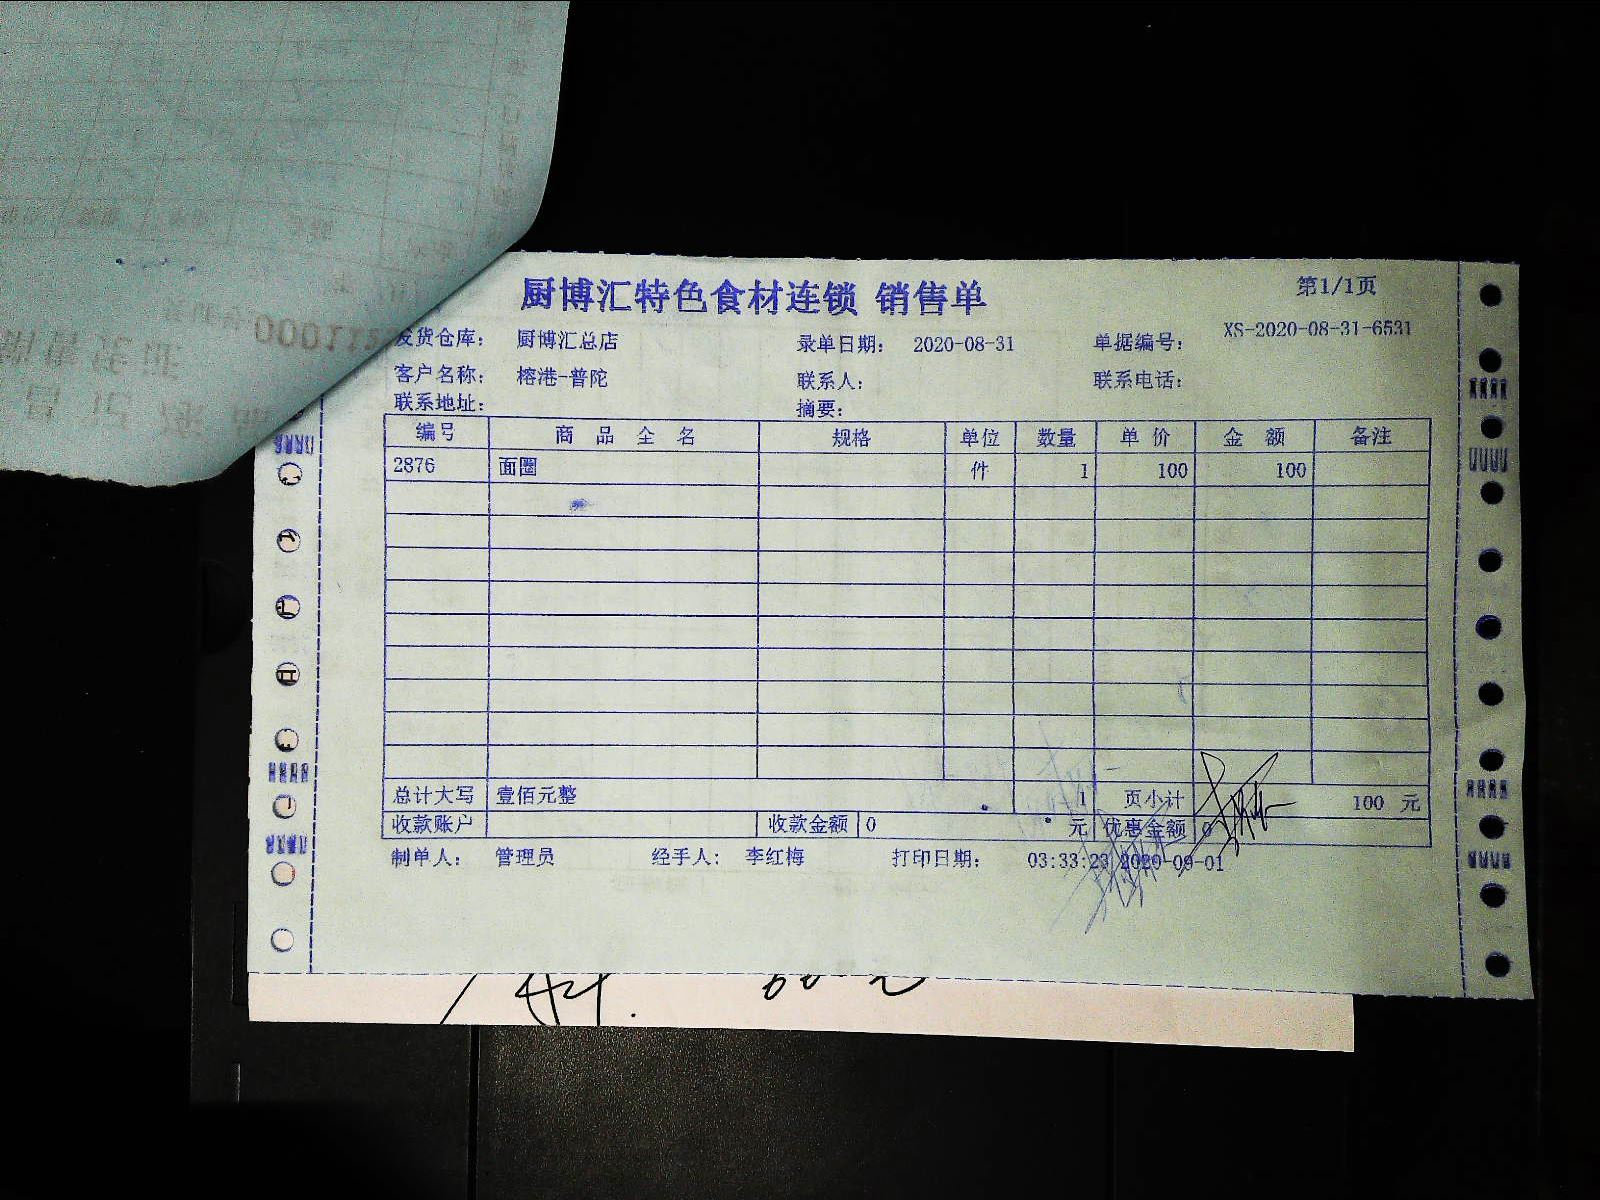 厨博汇特色食材连锁 销售单
第1/1页
发货仓库： 厨博汇总店 录单日期： 2020-08-31 单据编号： XS-2020-08-31-6531
客户名称： 榕港-普陀 联系人： 联系电话：
联系地址： 摘要：
编号 商 品 全 名 规格 单位 数量 单 价 金 额 备注
2876 面圈 件 1 100 100
总计大写 壹佰元整 1 页小计 100 元
收款账户 收款金额 0 元 优惠金额 0
制单人： 管理员 经手人： 李红梅 打印日期： 03:33:23 2020-09-01